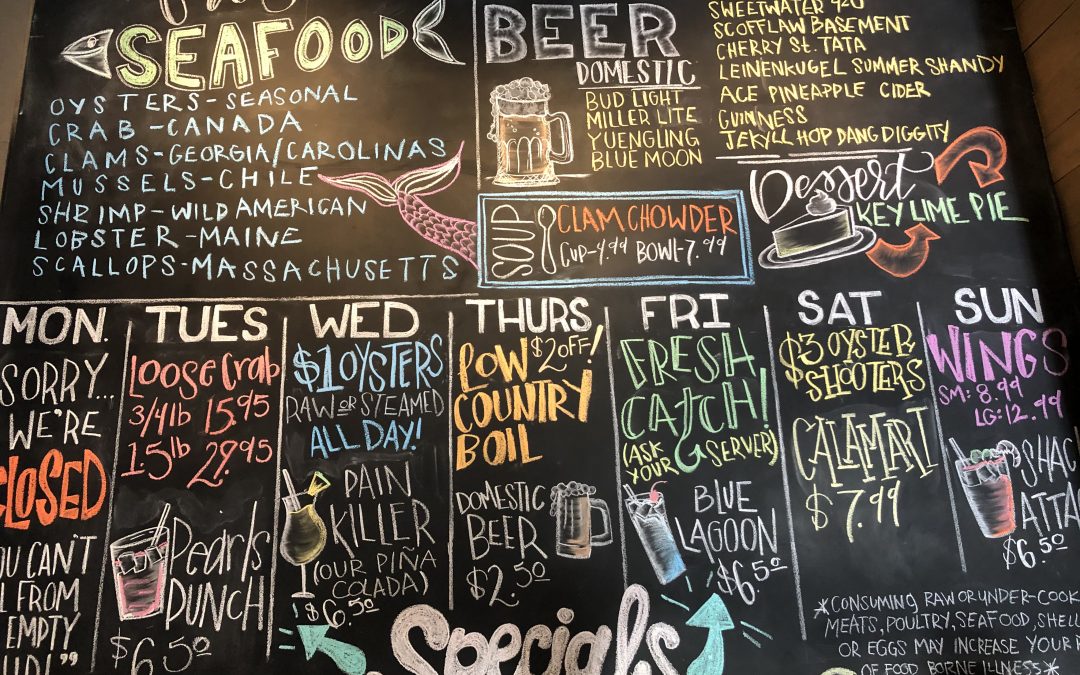 SEAFOOD
OYSTERS-SEASONAL
CRAB-CANADA
CLAMS-GEORGIA/CAROLINAS
MUSSELS-CHILE
SHRIMP-WILD AMERICAN
LOBSTER-MAINE
SCALLOPS-MASSACHUSETTS
BEER
DOMESTIC
BUD LIGHT
MILLER LITE
YUENGLING
BLUE MOON
SWEETWATER 420
SCOFFLAW BASEMENT
CHERRY ST. TATA
LEINENKUGEL SUMMER SHANDY
ACE PINEAPPLE CIDER
GUINNESS
JEKYLL HOP DANG DIGGITY
SOUP
CLAM CHOWDER
CUP-4.99 BOWL-7.99
Dessert
KEY LIME PIE
MON.
SORRY...
WE'RE
CLOSED
YOU CAN'T
FROM
EMPTY
TUES
Loose Crab
3/4lb 15.95
1.5lb 29.95
Pearls
PUNCH
$6.50
WED
$1 OYSTERS
RAW OR STEAMED
ALL DAY!
PAIN
KILLER
(OUR PIÑA
COLADA)
$6.50
THURS
$2 OFF!
LOW
COUNTRY
BOIL
DOMESTIC
BEER
$2.50
FRI
FRESH
CATCH!
(ASK YOUR SERVER)
BLUE
LAGOON
$6.50
SAT
$3 OYSTER
SHOOTERS
CALAMARI
$7.99
SUN
WINGS
SM: 8.99
LG: 12.99
SHAC
ATTA
$6.50
Specials
*CONSUMING RAW OR UNDER-COOK
MEATS, POULTRY, SEAFOOD, SHELL
OR EGGS MAY INCREASE YOUR
OF FOOD BORNE ILLNESS*